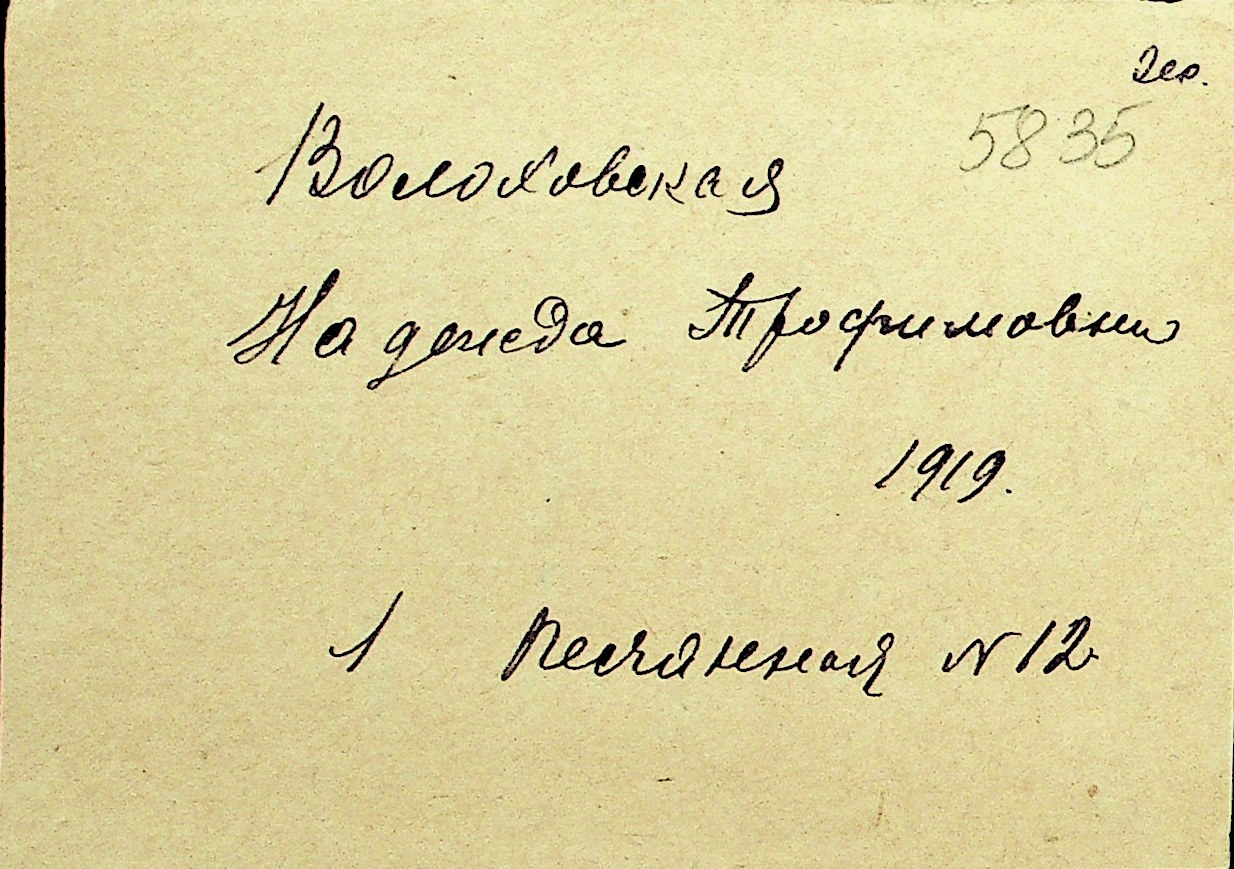 5835
Волоховская
Надежда Трофимовна
1919.
1 Песчанная N 12